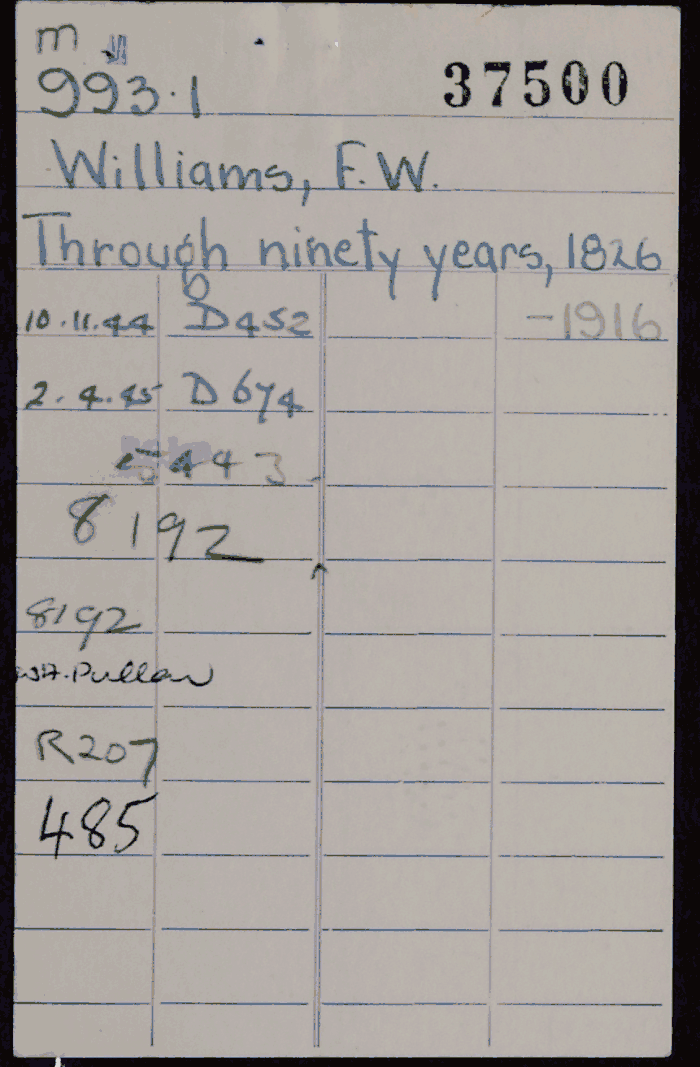 m
993.1 37500
Williams, F.W.
Through ninety years, 1826
-1916
10.11.44 D452
2.4.45 D674
5443
8192
8192
WA.Pullar
R207
485